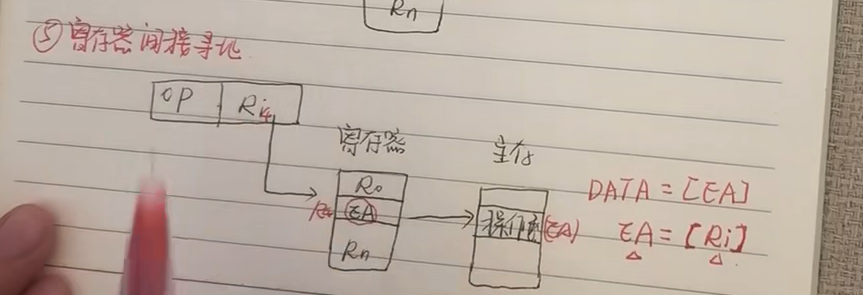 Rn
⑤寄存器间接寻址
OP Ri
寄存器 主存
R0
Ri EA 操作数(EA) DATA=[EA]
Rn EA=[Ri]